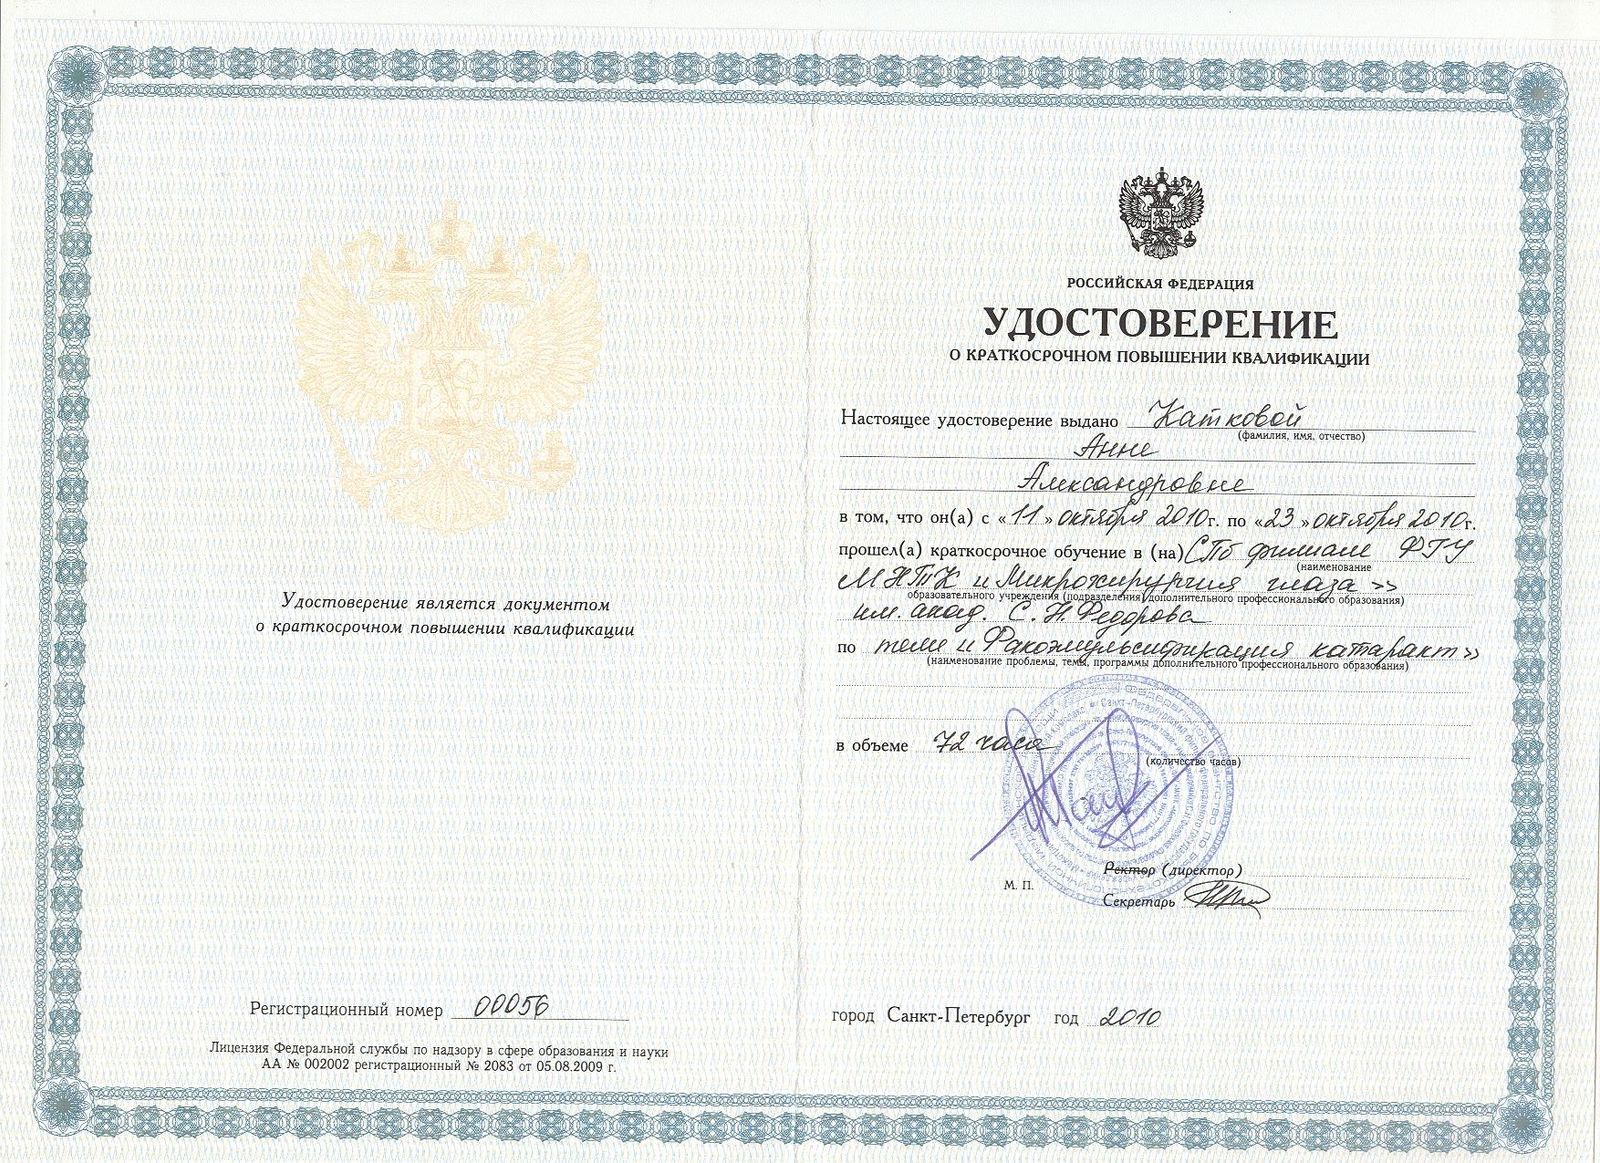 Удостоверение является документом
о краткосрочном повышении квалификации
Регистрационный номер 00056
Лицензия Федеральной службы по надзору в сфере образования и науки
АА № 002002 регистрационный № 2083 от 05.08.2009 г.
РОССИЙСКАЯ ФЕДЕРАЦИЯ
УДОСТОВЕРЕНИЕ
О КРАТКОСРОЧНОМ ПОВЫШЕНИИ КВАЛИФИКАЦИИ
Настоящее удостоверение выдано Катковой
(фамилия, имя, отчество)
Анне
Александровне
в том, что он(а) с «11» октября 2010г. по «23» октября 2010г.
прошел(а) краткосрочное обучение в (на) СПб филиале ФГУ
(наименование
МНТК «Микрохирургия глаза»
образовательного учреждения (подразделения) дополнительного профессионального образования)
им. акад. С. Н. Федорова
по теме «Факоэмульсификация катаракт»
(наименование проблемы, темы, программы дополнительного профессионального образования)
в объеме 72 часа
(количество часов)
Ректор (директор)
М. П.
Секретарь
город Санкт-Петербург год 2010